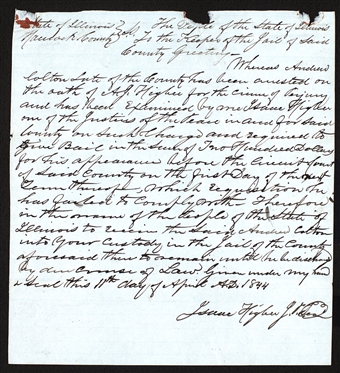 State of Illinois The People of the State of Illinois
Hancock County To the Keeper of the Jail of Said
County Greeting
Whereas Andrew
Colton late of the County has been arrested on
the oath of A Higbee for the crime of Perjury
and has been Examined by me Isaac Higbee
one of the Justices of the Peace in and for said
County on Such Charge and required to
give Bail in the Sum of Two Hundred Dollars
for his appearance before the Circuit Court
of Said County on the first Day of the next
Term thereof which requisition he
has failed to Comply with Therefore
in the name of the People of the State of
Illinois to receive the Said Andrew Colton
into Your Custody in the Jail of the County
aforesaid there to remain until he be discharged
by due Course of Law Given under my hand
& Seal this 11th day of April AD. 1844
Isaac Higbee J.P.